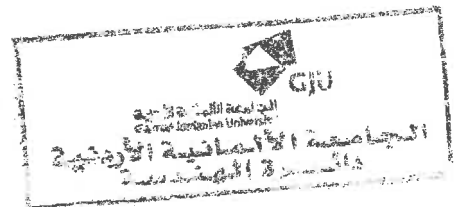 GJU
الجامعة الألمانية الأردنية
German Jordanian University
الجامعة الألمانية الأردنية
دائرة الهندسية